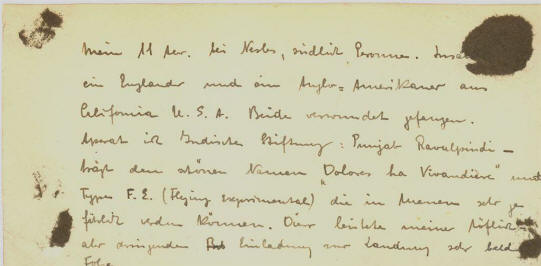 Mein 11 ter. bei Nesles, südlich Peronne. Insa
ein Engländer und ein Anglo-Amerikaner aus
California U.S.A. Beide verwundet gefangen.
Aparat ist Indische Stiftung: Punjab Ravulpindi -
trägt den schönen Namen "Dolores ha Vivandière" und
Type F.E. (Flying experimental) die in Mengen sehr ge
fährlich werden können. Dieser leistete meiner höflich
aber dringenden Einladung zur Landung sehr bald
Folge